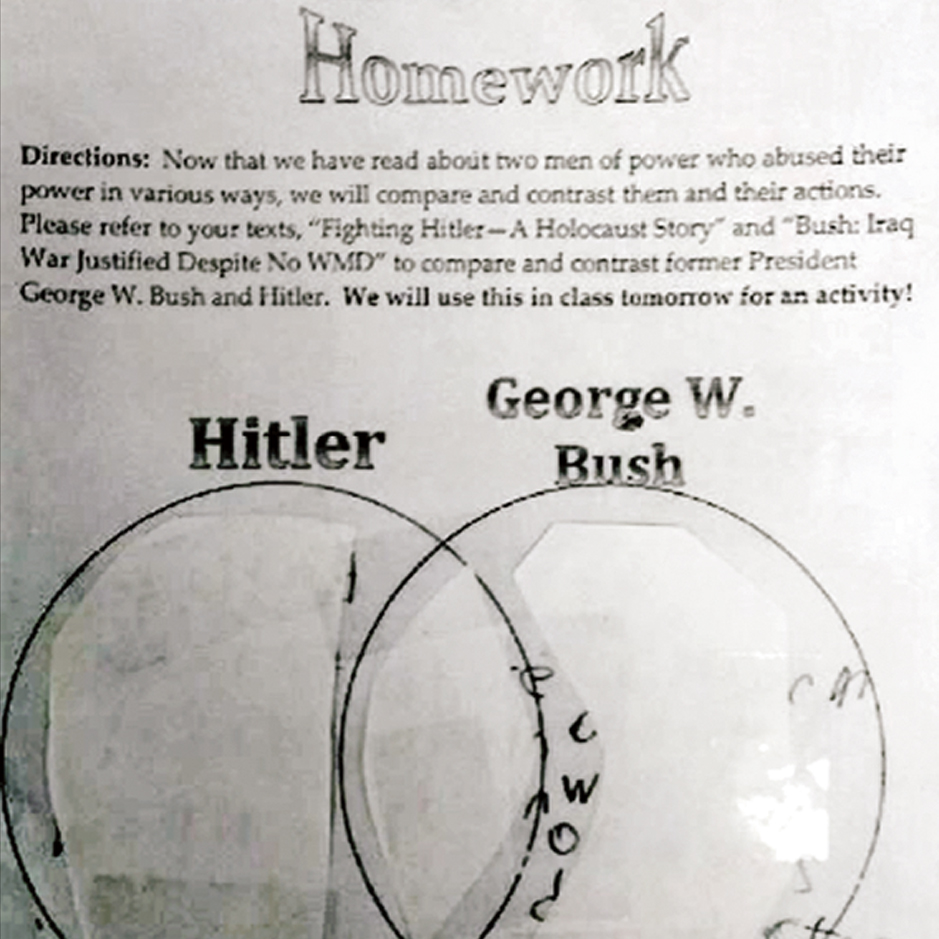 Homework
Directions: Now that we have read about two men of power who abused their
power in various ways, we will compare and contrast them and their actions.
Please refer to your texts, "Fighting Hitler—A Holocaust Story" and "Bush: Iraq
War Justified Despite No WMD" to compare and contrast former President
George W. Bush and Hitler. We will use this in class tomorrow for an activity!
George W.
Bush
Hitler